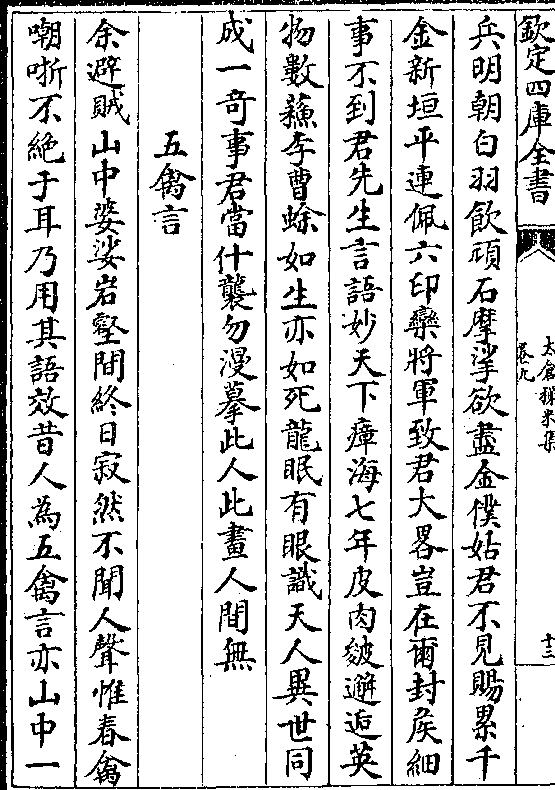 欽定四庫全書
太倉稊米集
卷九
十三
兵明朝白羽飲頑石摩挲欲盡金僕姑君不見賜累千
金新垣平連佩六印欒將軍致君大畧豈在爾封侯細
事不到君先生言語妙天下瘴海七年皮肉皴邂逅英
物數蘓李曹蜍如生亦如死龍眠有眼識天人異世同
成一竒事君當什襲勿漫摹此人此畫人間無
五禽言
余避賊山中婆娑岩壑間終日寂然不聞人聲惟春禽
嘲哳不絶于耳乃用其語效昔人為五禽言亦山中一